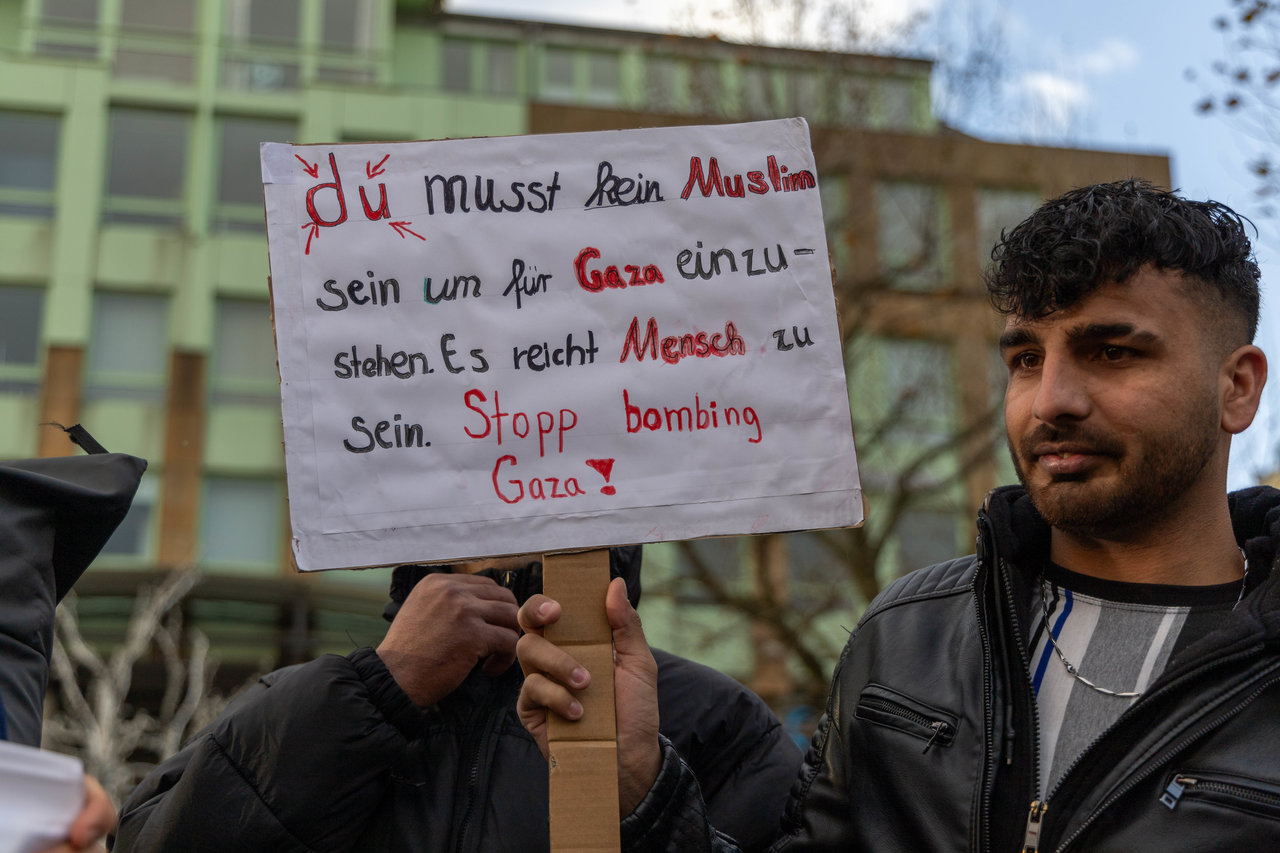 du musst kein Muslim
sein um für Gaza einzu-
stehen. Es reicht Mensch zu
sein. Stopp bombing
Gaza!